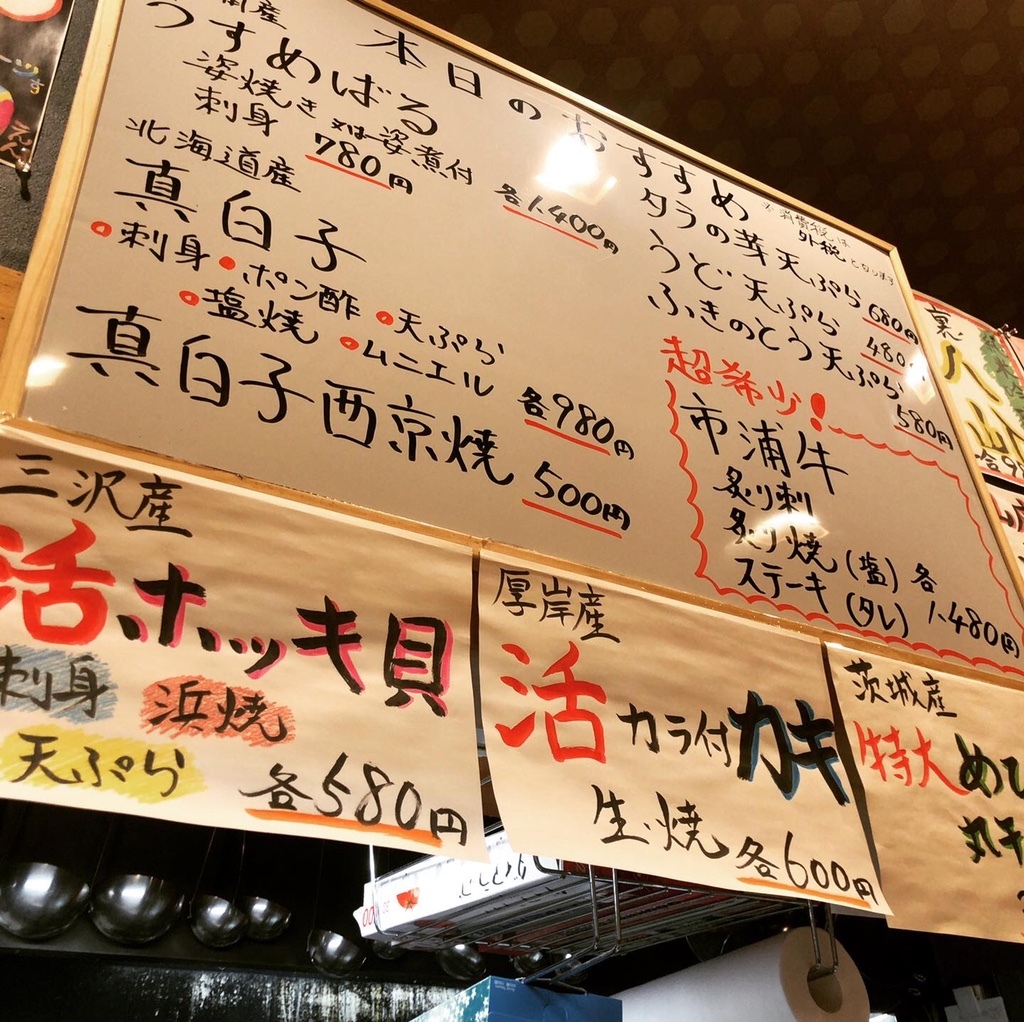 本日のおすすめ
※消費税は
外税
となります
うすめばる
姿焼き 又は姿煮付
各1,400円
刺身 780円
北海道産
真白子
・刺身・ポン酢・天ぷら
・塩焼・ムニエル
各980円
真白子西京焼
500円
タラの芽天ぷら
680円
うどの天ぷら
480円
ふきのとう天ぷら
580円
超希少!
市浦牛
炙り刺
炙り焼(塩)各
ステーキ(タレ)
1,480円
三沢産
活ホッキ貝
刺身
浜焼
天ぷら
各580円
厚岸産
活カラ付カキ
生・焼
各600円
茨城産
特大めひ
丸干
裏八